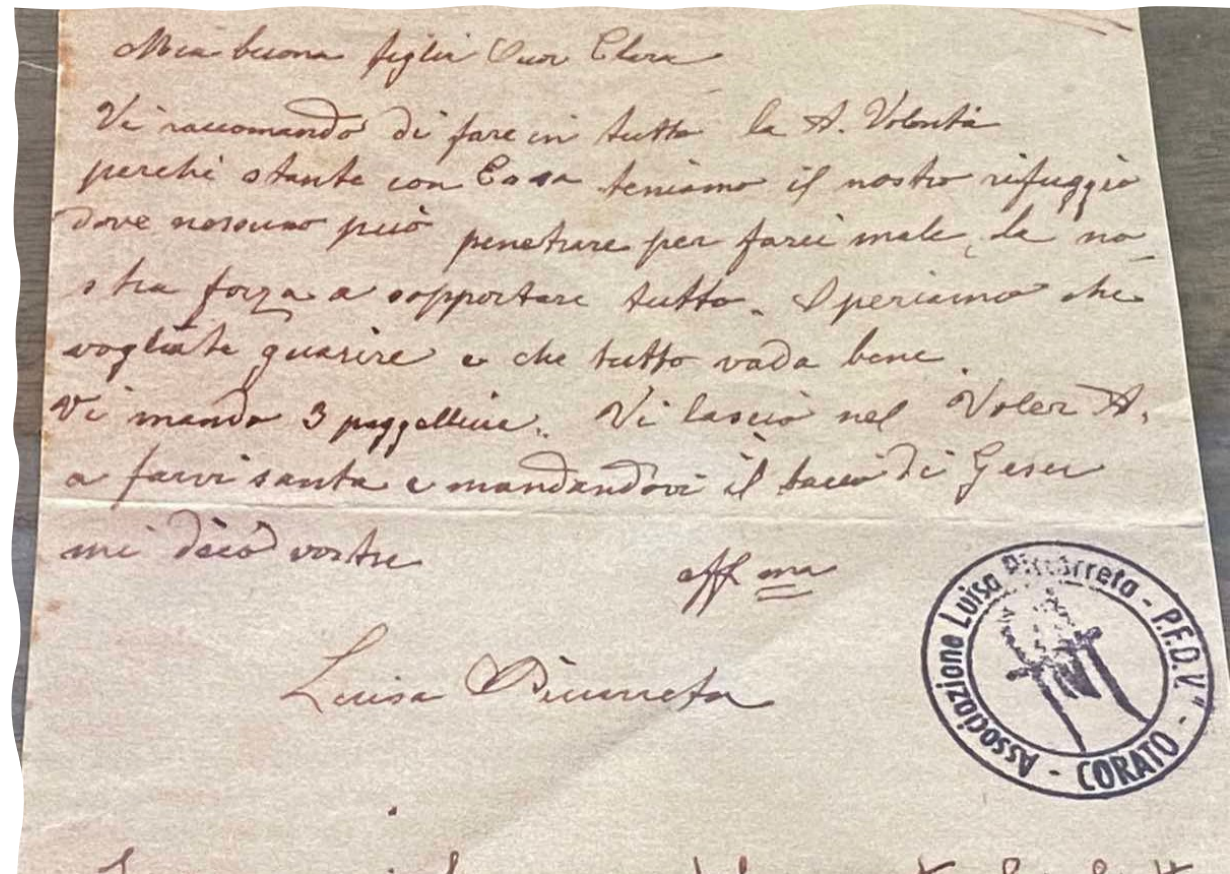 Mia buona figlia Suor Clara
Vi raccomando di fare in tutto la S. Volontà
perchè stante con Essa teniamo il nostro rifuggio
dove nessuno può penetrare per farci male, la no-
stra forza a sopportare tutto. Speriamo che
vogliate guarire e che tutto vada bene
Vi mando 3 paggelline. Vi lascio nel Voler S.
a farvi santa e mandandovi il bacio di Gesù
mi dico vostra
aff ma
Luisa Piccarreta
Associazione Luisa Piccarreta - P.F.D.V." - CORATO -